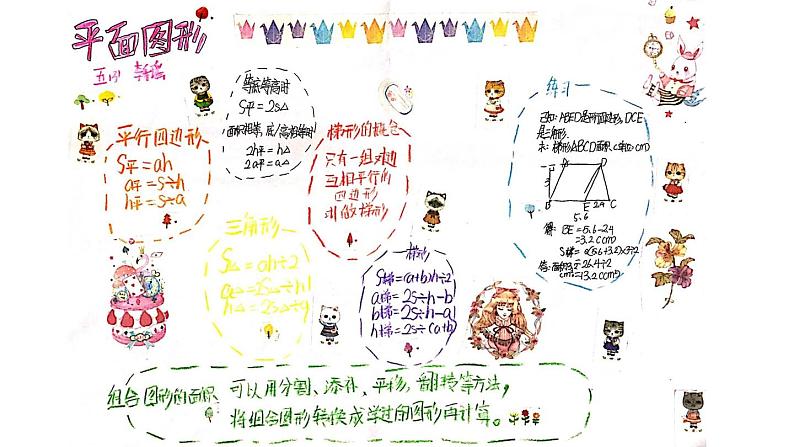 平面图形
五
等底等高时
S平=2S△
面积相等,底/高相等时
2h平=h△
2a平=a△
平行四边形
S平=ah
a平=S÷h
h平=S÷a
梯形的概念
只有一组对边
互相平行的
四边形
叫做梯形
三角形
S△=ah÷2
a△=2S△÷h
h△=2S△÷a
梯形
S梯=(a+b)h÷2
a梯=2S÷h-b
b梯=2S÷h-a
h梯=2S÷(a+b)
练习一
已知:ABED是平行四边形,DCE
是三角形.
求:梯形ABCD面积
A D
3
B E 2.4 C
5.6
解:BE=5.6-2.4
=3.2(cm)
=26.4÷2
=13.2(cm²)
组合图形的面积 可以用分割、添补、平移、翻转等方法,
将组合图形转换成学过的图形再计算。